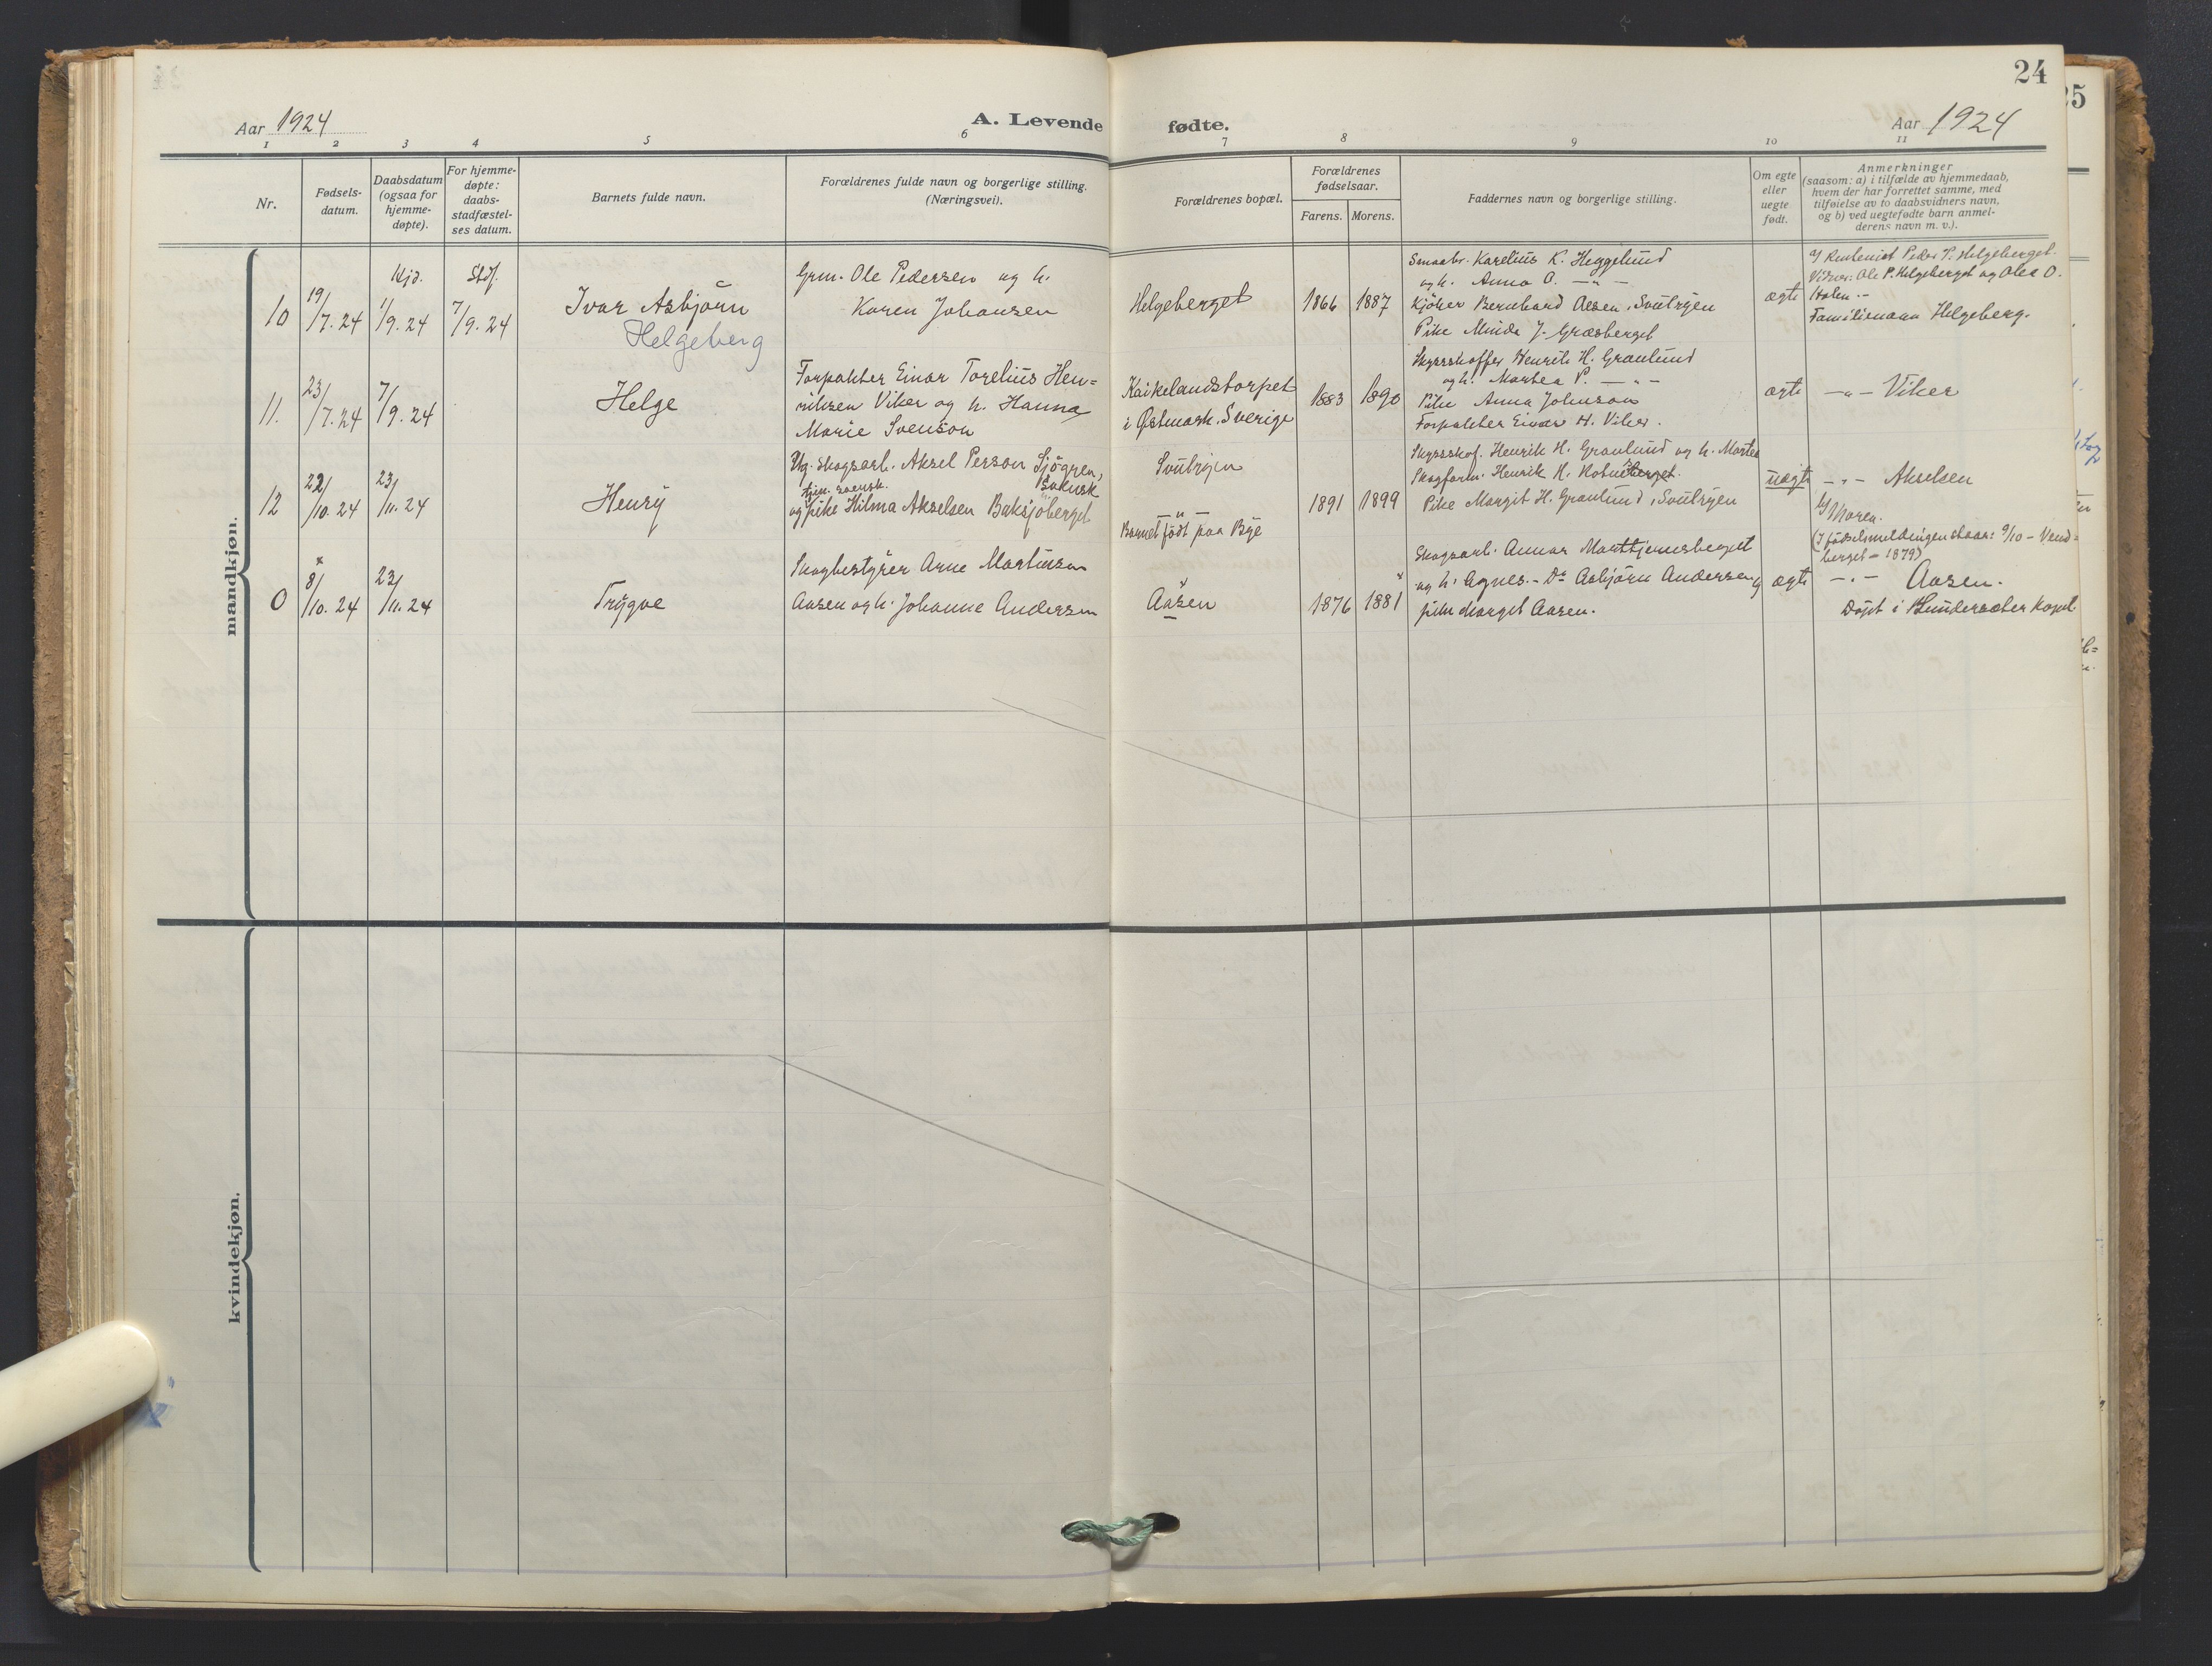 24
Aar 1924
A. Levende fødte.
Aar 1924
1 2 3 4 5 6 7 8 9 10 11
Nr.
Fødsels-
datum.
Daabsdatum
(ogsaa for
hjemme-
døpte).
For hjemme-
døpte:
daabs-
stadfæstel-
ses datum.
Barnets fulde navn.
Forældrenes fulde navn og borgerlige stilling.
(Næringsvei).
Forældrenes bopæl.
Forældrenes
fødselsaar.
Farens. Morens.
Faddernes navn og borgerlige stilling.
Om egte
eller
uegte
født.
Anmerkninger
(saasom: a) i tilfælde av hjemmedaab,
hvem der har forrettet samme, med
tilføielse av to daabsvidners navn,
og b) ved uegtefødte barn anmel-
derens navn m. v.).
mandkjøn.
10
19/7. 24
Hjd.
1/9. 24
Stdf.
7/9. 24
Ivar Asbjörn
Helgeberg
Grm. Ole Pedersen og h.
Karen Johansen
Helgeberget
1866
1887
Smaabr. Karelius K. Heggelund
og h. Anna O. — " —
Kjöker Bernhard Olsen, Svulrÿen
Pike Minda J. Græsberget
ægte
Peder P. Helgeberget.
Vidner: Ole P. Helgeberget og Olea O.
Holen. —
Familienavn Helgeberg.
11.
23/7. 24
7/9. 24
Helge
Forpakter Einar Torelius Hen=
riksen Viker og h. Hanna
Marie Svenson
Kaikelandstorpet
i Østmark. Sverige
1883
1890
Skyssskaffer Henrik H. Granlund
og h. Martea P. — " —
Pike Anna Johnson
Forpakter Einar H. Viker.
ægte
— " — Viker
12
22/10. 24
23/11. 24
Henrÿ
Ug. Skogsarb. Aksel Person Sjögren,
svensk
og pike Hilma Akselsen Baksjöberget
Svulrÿen
— " —
Barnet födt paa Bÿe
1891
1899
Skyssskaf. Henrik H. Granlund og h. Martea
Skogform. Henrik H.
Pike Margit H. Granlund, Svulrÿen
uægte
— " — Akselsen
Moren.
(I fødselsmeldingen staar: 9/10 -
berget - 1879)
0
8/10. 24
23/11. 24
Trÿgve
Skogbestÿrer Arne Martinsen
Aasen og h. Johanne Andersen
Aasen
1876
1881
Skogsarb. Annar Morttjernsberget
og h. Agnes. - Do Asbjörn Andersen og
pike Margit Aasen.
ægte
— " — Aasen.
Döpt i Lundersæter Kapel
kvindekjøn.
25